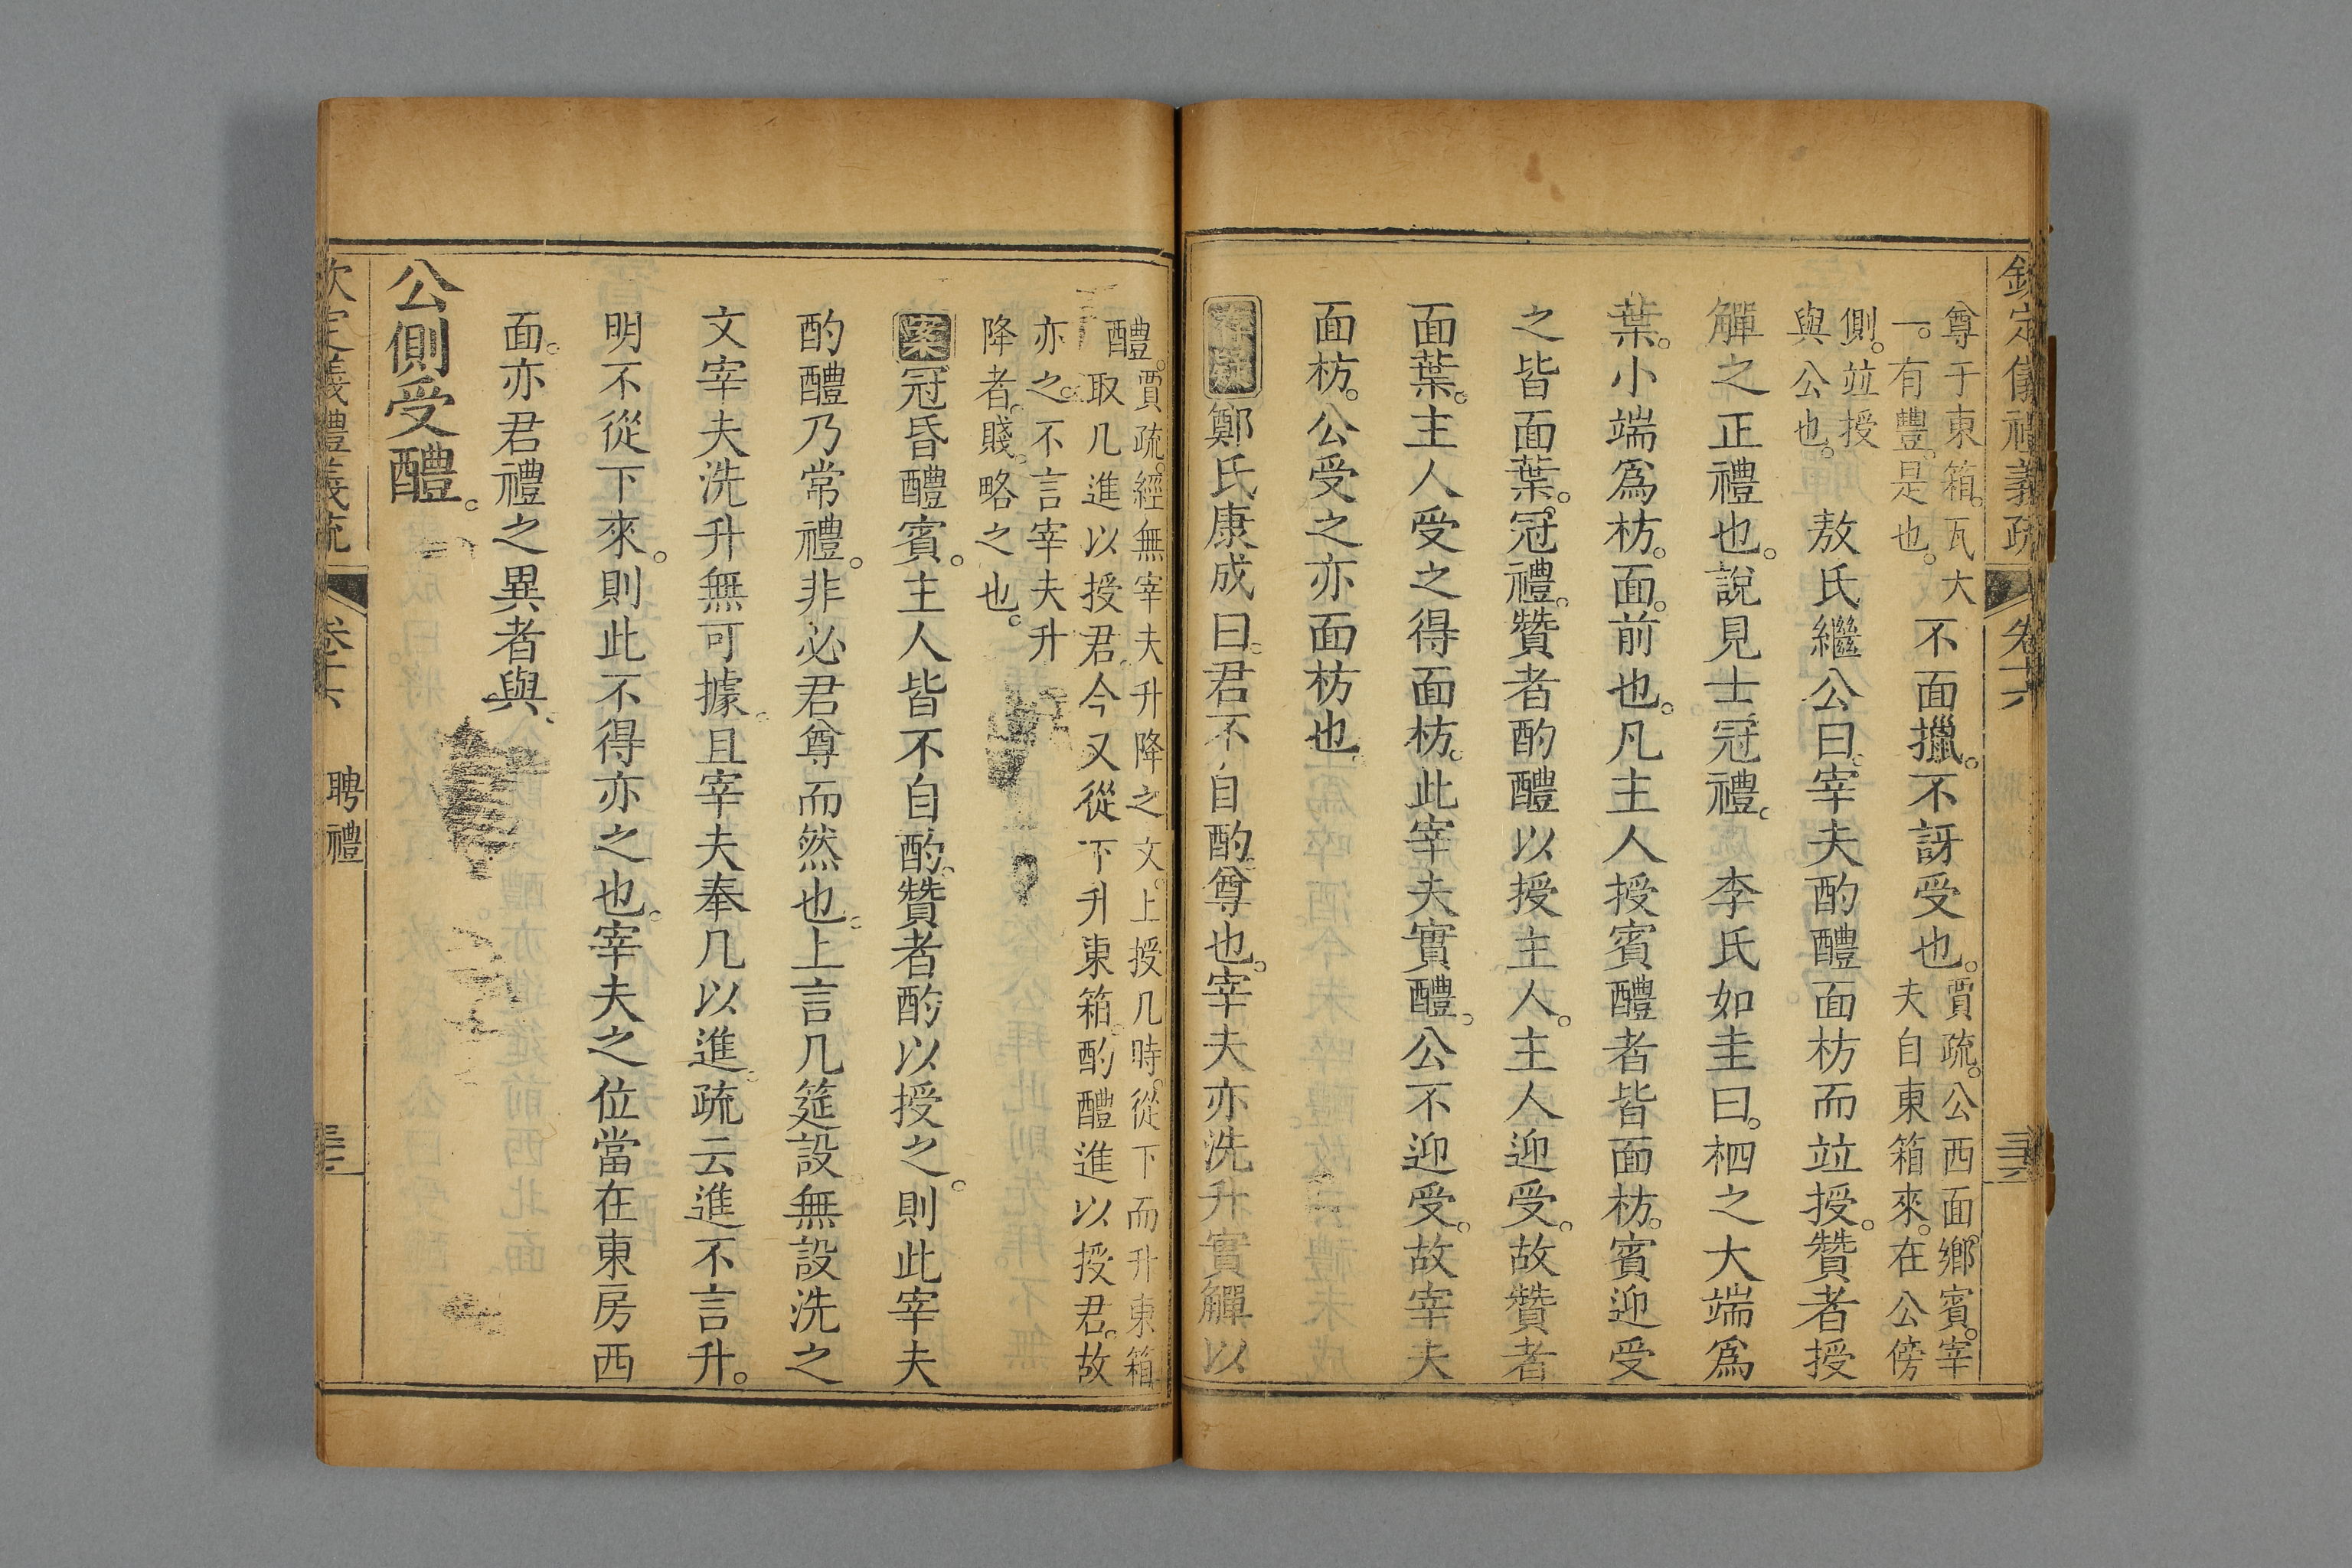 欽定儀禮義疏 卷十六
尊于東箱。瓦大
一。有豐。是也。
不面擸。不訝受也。
賈疏。公西面鄉賓。宰
夫自東箱來。在公傍
側。竝授
與公也。
敖氏繼公曰。宰夫酌醴面枋而竝授。贊者授
觶之正禮也。說見士冠禮。 李氏如圭曰。柶之大端爲
葉。小端爲枋。面。前也。凡主人授賓醴者皆面枋。賓迎受
之皆面葉。冠禮。贊者酌醴以授主人。主人迎受。故贊者
面葉。主人受之得面枋。此宰夫實醴。公不迎受。故宰夫
面枋。公受之亦面枋也。
存疑 鄭氏康成曰。君不自酌尊也。宰夫亦洗升實觶以
醴。賈疏。經無宰夫升降之文。上授几時。從下而升東箱
取几進以授君。今又從下升東箱。酌醴進以授君。故
亦之。不言宰夫升
降者。賤。略之也。
案 冠昏醴賓。主人皆不自酌。贊者酌以授之。則此宰夫
酌醴乃常禮。非必君尊而然也。上言几筵設無設洗之
文宰夫洗升無可據。且宰夫奉几以進。疏云進不言升。
明不從下來。則此不得亦之也。宰夫之位當在東房西
面。亦君禮之異者與。
公側受醴。
欽定義禮義疏 卷十六 聘禮